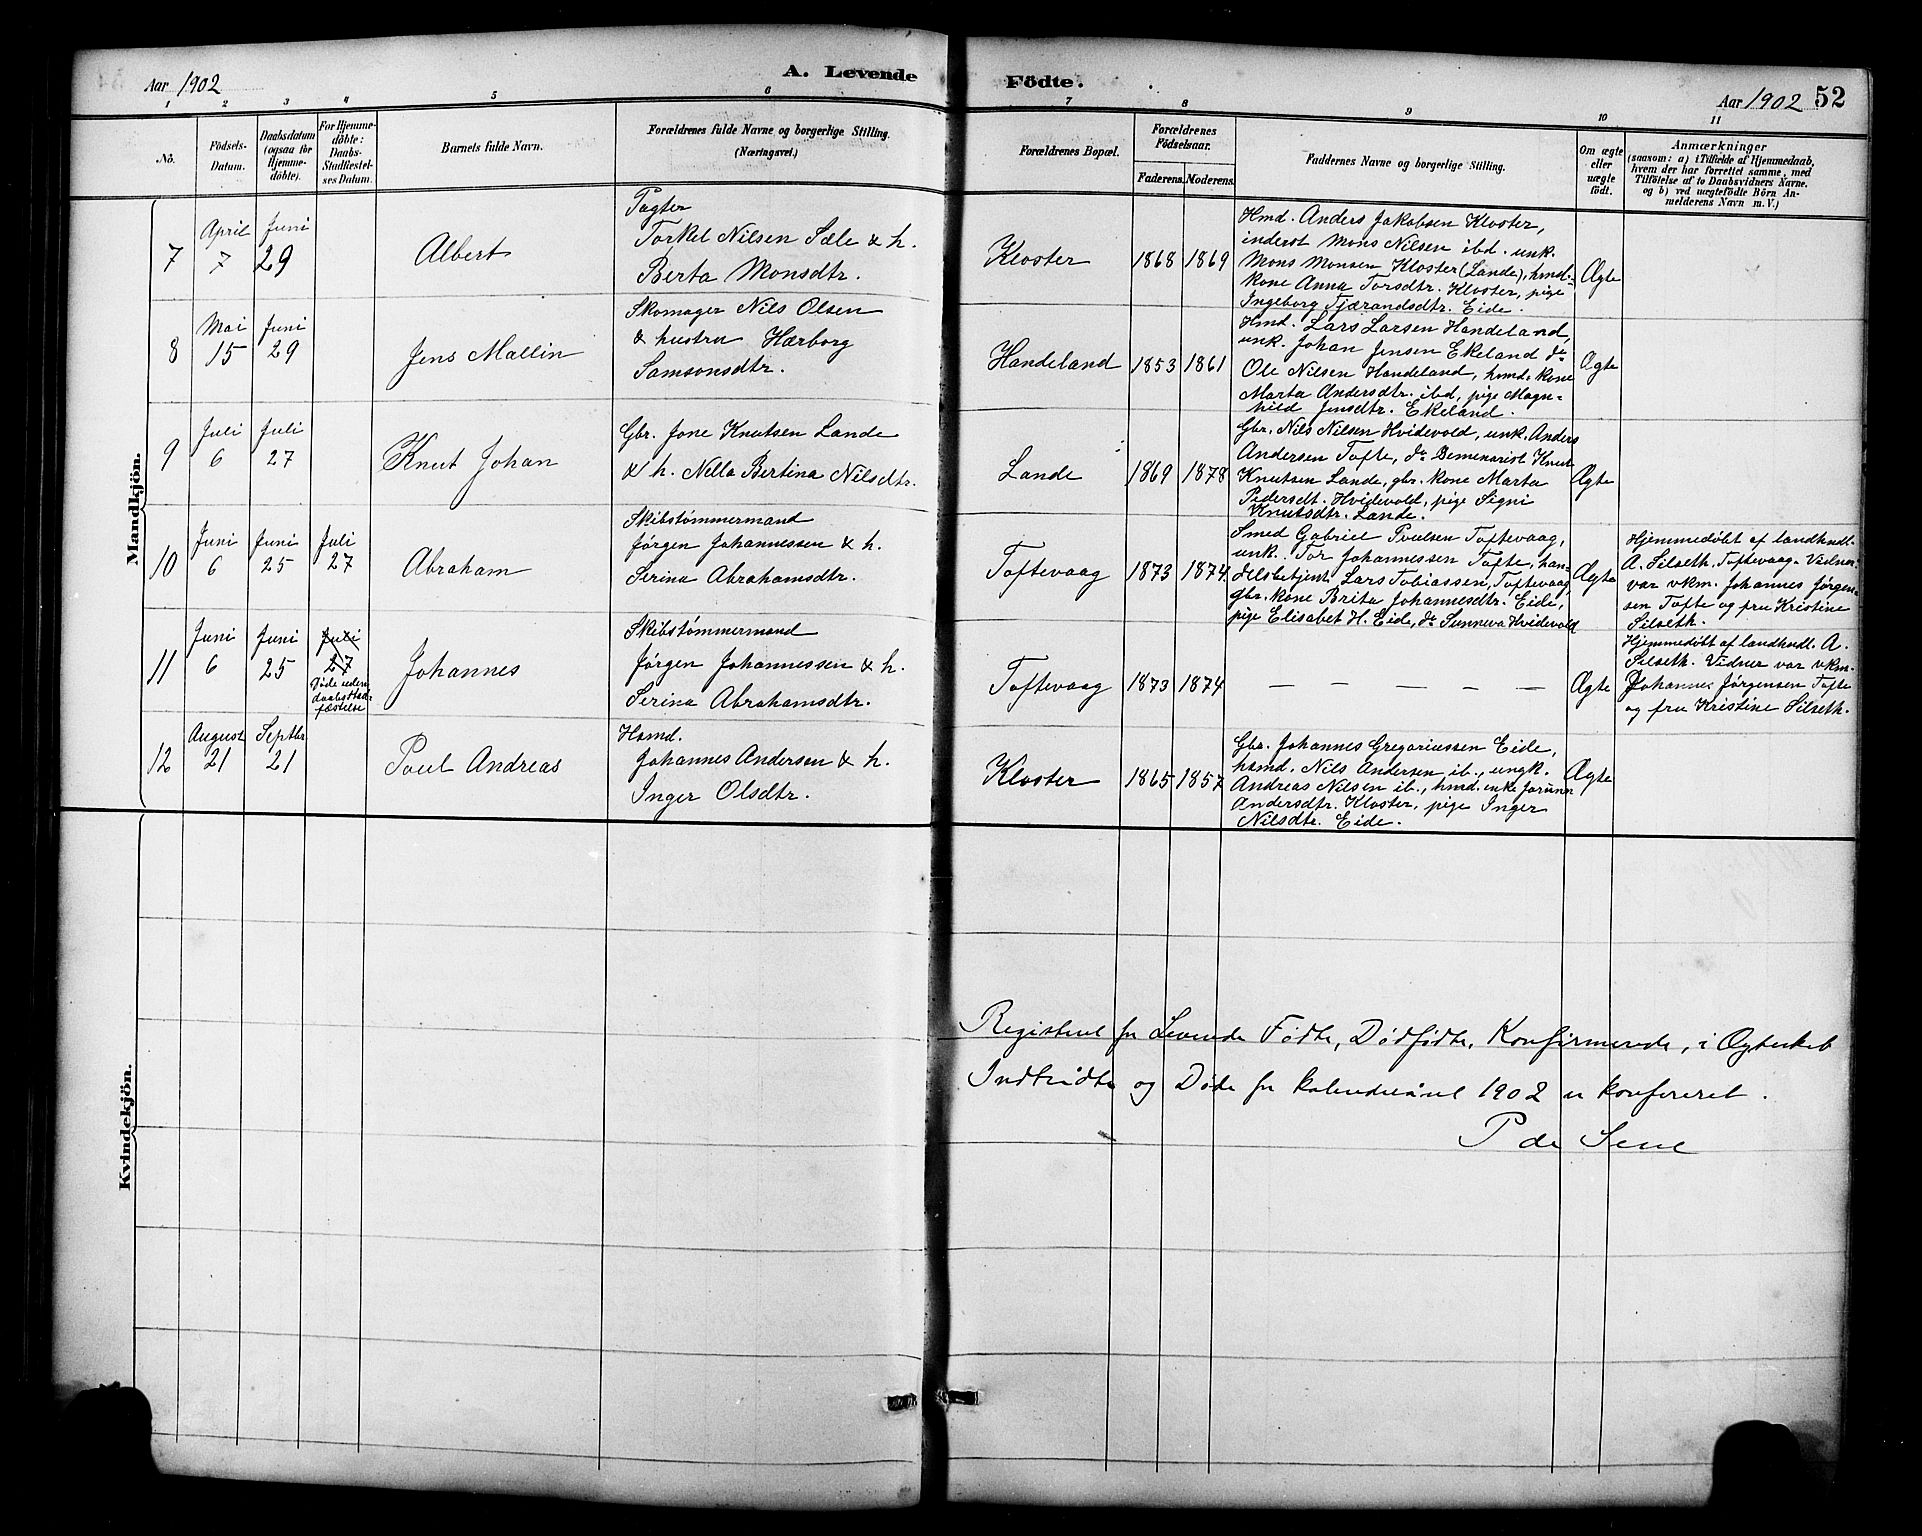 Aar 1902
A. Levende
Födte.
Aar 1902 52
1 2 3 4 5 6 7 8 9 10 11
No.
Födsels-
Datum.
Daabsdatum
(ogsaa for
Hjemme-
döbte).
For Hjemme-
döbte:
Daabs-
Stadfæstel-
ses Datum.
Barnets fulde Navn.
Forældrenes fulde Navne og borgerlige Stilling.
(Næringsvei.)
Forældrenes Bopæl.
Forældrenes
Födselsaar.
Faderens. Moderens.
Faddernes Navne og borgerlige Stilling.
Om ægte
eller
uægte
födt.
Anmærkninger
(saasom: a) i Tilfælde af Hjemmedaab,
hvem der har forrettet samme, med
Tilföielse af to Daabsvidners Navne,
og b) ved uægtefödte Börn An-
melderens Navn m. V.)
Mandkjön.
7
April
7
Juni
29
Albert
Pagter
Torkel Nilsen Sæle & h.
Berta Monsdtr.
Kloster
1868 1869
Hmd. Anders Jakobsen Kloster,
inderst Mons Nilsen ibd. unk.
Mons Monsen Kloster (Lande), hmd.-
kone Anna Torsdtr. Kloster, pige
Ingeborg Tjærandsdtr. Eide.
Ægte
8
Mai
15
Juni
29
Jens Mallin
Skomager Nils Olsen
& hustru Hærborg
Samsonsdtr.
Handeland
1853 1861
Hmd. Lars Larsen Handeland,
unk. Johan Jensen Ekeland do
Ole Nilsen Handeland, hmd. kone
Marta Andersdtr. ibd, pige Magn-
hild Jensdtr. Ekeland.
Ægte
9
Juli
6
Juli
27
Knut Johan
Gbr. Jone Knutsen Lande
& h. Nella Bertina Nilsdtr.
Lande
1869 1878
Gbr. Nils Nilsen Hvidevold, unk. Anders
Andersen Tofte, do Seminarist Knut
Knutsen Lande, gbr. kone Marta
Pedersdt. Hvidevold, pige Signi
Knutsdtr. Lande.
Ægte
10
Juni
6
Juni
25
Juli
27
Abraham
Skibstømmermand
Jørgen Johannessen & h.
Serina Abrahamsdtr.
Toftevaag
1873 1874
Smed Gabriel Poulsen Toftevaag,
unk. Tor Johannessen Tofte, han-
delsbetjent Lars Tobiassen, Toftevaag,
gbr. kone Brita Johannesdtr. Eide,
pige Elisabet H. Eide, do Sunneva Hvidevold
Ægte
Hjemmedøbt af landhndl.
A. Silseth, Toftevaag. Vidner
var vkm. Johannes Jørgen-
sen Tofte og fru Kristine
Silseth.
11
Juni
6
Juni
25
Juli
27
Døde uden
daabsstad-
fæstelse
Johannes
Skibstømmermand
Jørgen Johannessen & h.
Serina Abrahamsdtr.
Toftevaag
1873 1874
— — — — —
Ægte
Hjemmedøbt af landhndl. A.
Silseth. Vidner var vkm.
Johannes Jørgensen Tofte
og fru Kristine Silseth.
12
August
21
Septbr
21
Poul Andreas
Hsmd.
Johannes Andersen & h.
Inger Olsdtr.
Kloster
1865 1857
Gbr. Johannes Gregoriussen Eide,
hsmd. Nils Andersen ib., ungk.
Andreas Nilsen ib., hmd. enke Jorunn
Andersdtr. Kloster, pige Inger
Nilsdtr. Eide.
Ægte
Kvindekjön.
Registret for Levende Fødte, Dødfødte, Konfirmerede, i Ægteskab
Indtrådte og Døde for kalenderåret 1902 er konfereret.
P de Seue